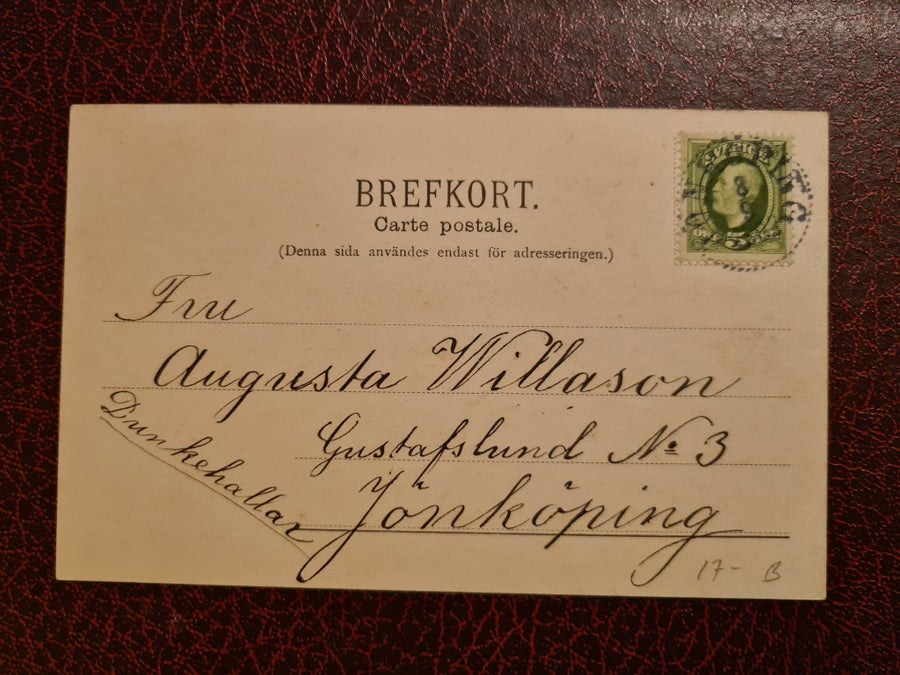 BREFKORT.
Carte postale.
(Denna sida användes endast för adresseringen.)
SVERIGE
5
Fru
Augusta Willason
Gustafslund No 3
Dunkehallar
Jönköping
17- B